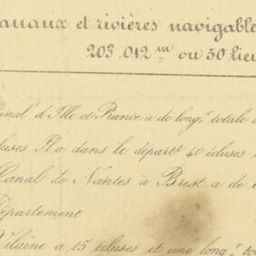 Canaux et rivières navigable
203.012 m ou 50 lieu
anal d'Ille et Rance a de longr totale
luses Il a dans le départt 40 écluses
Canal de Nantes à Brest a de
Département
Vilaine a 15 écluses et une longr to